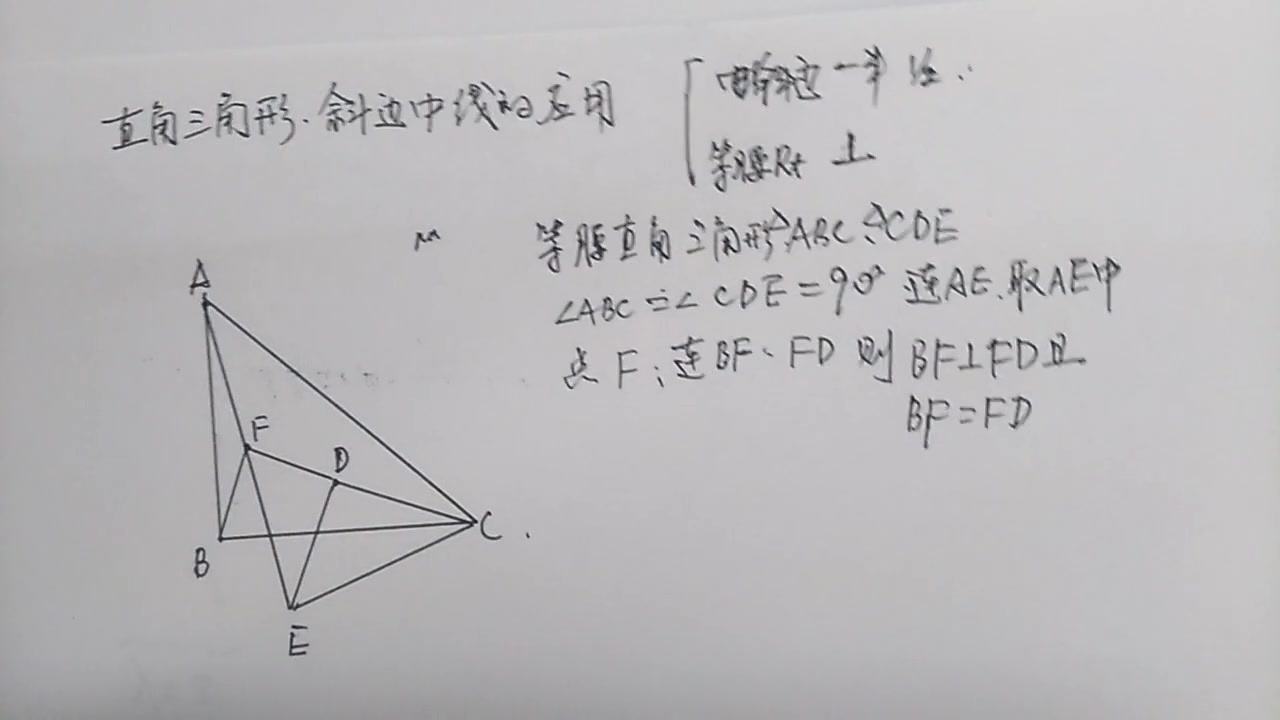 直角三角形.斜边中线的应用
斜边一半
等腰Rt ⊥
等腰直角三角形△ABC、△CDE
∠ABC=∠CDE=90° 连AE.取AE中
点F;连BF、FD 则BF⊥FD且
BF=FD
A
F
D
B
C.
E